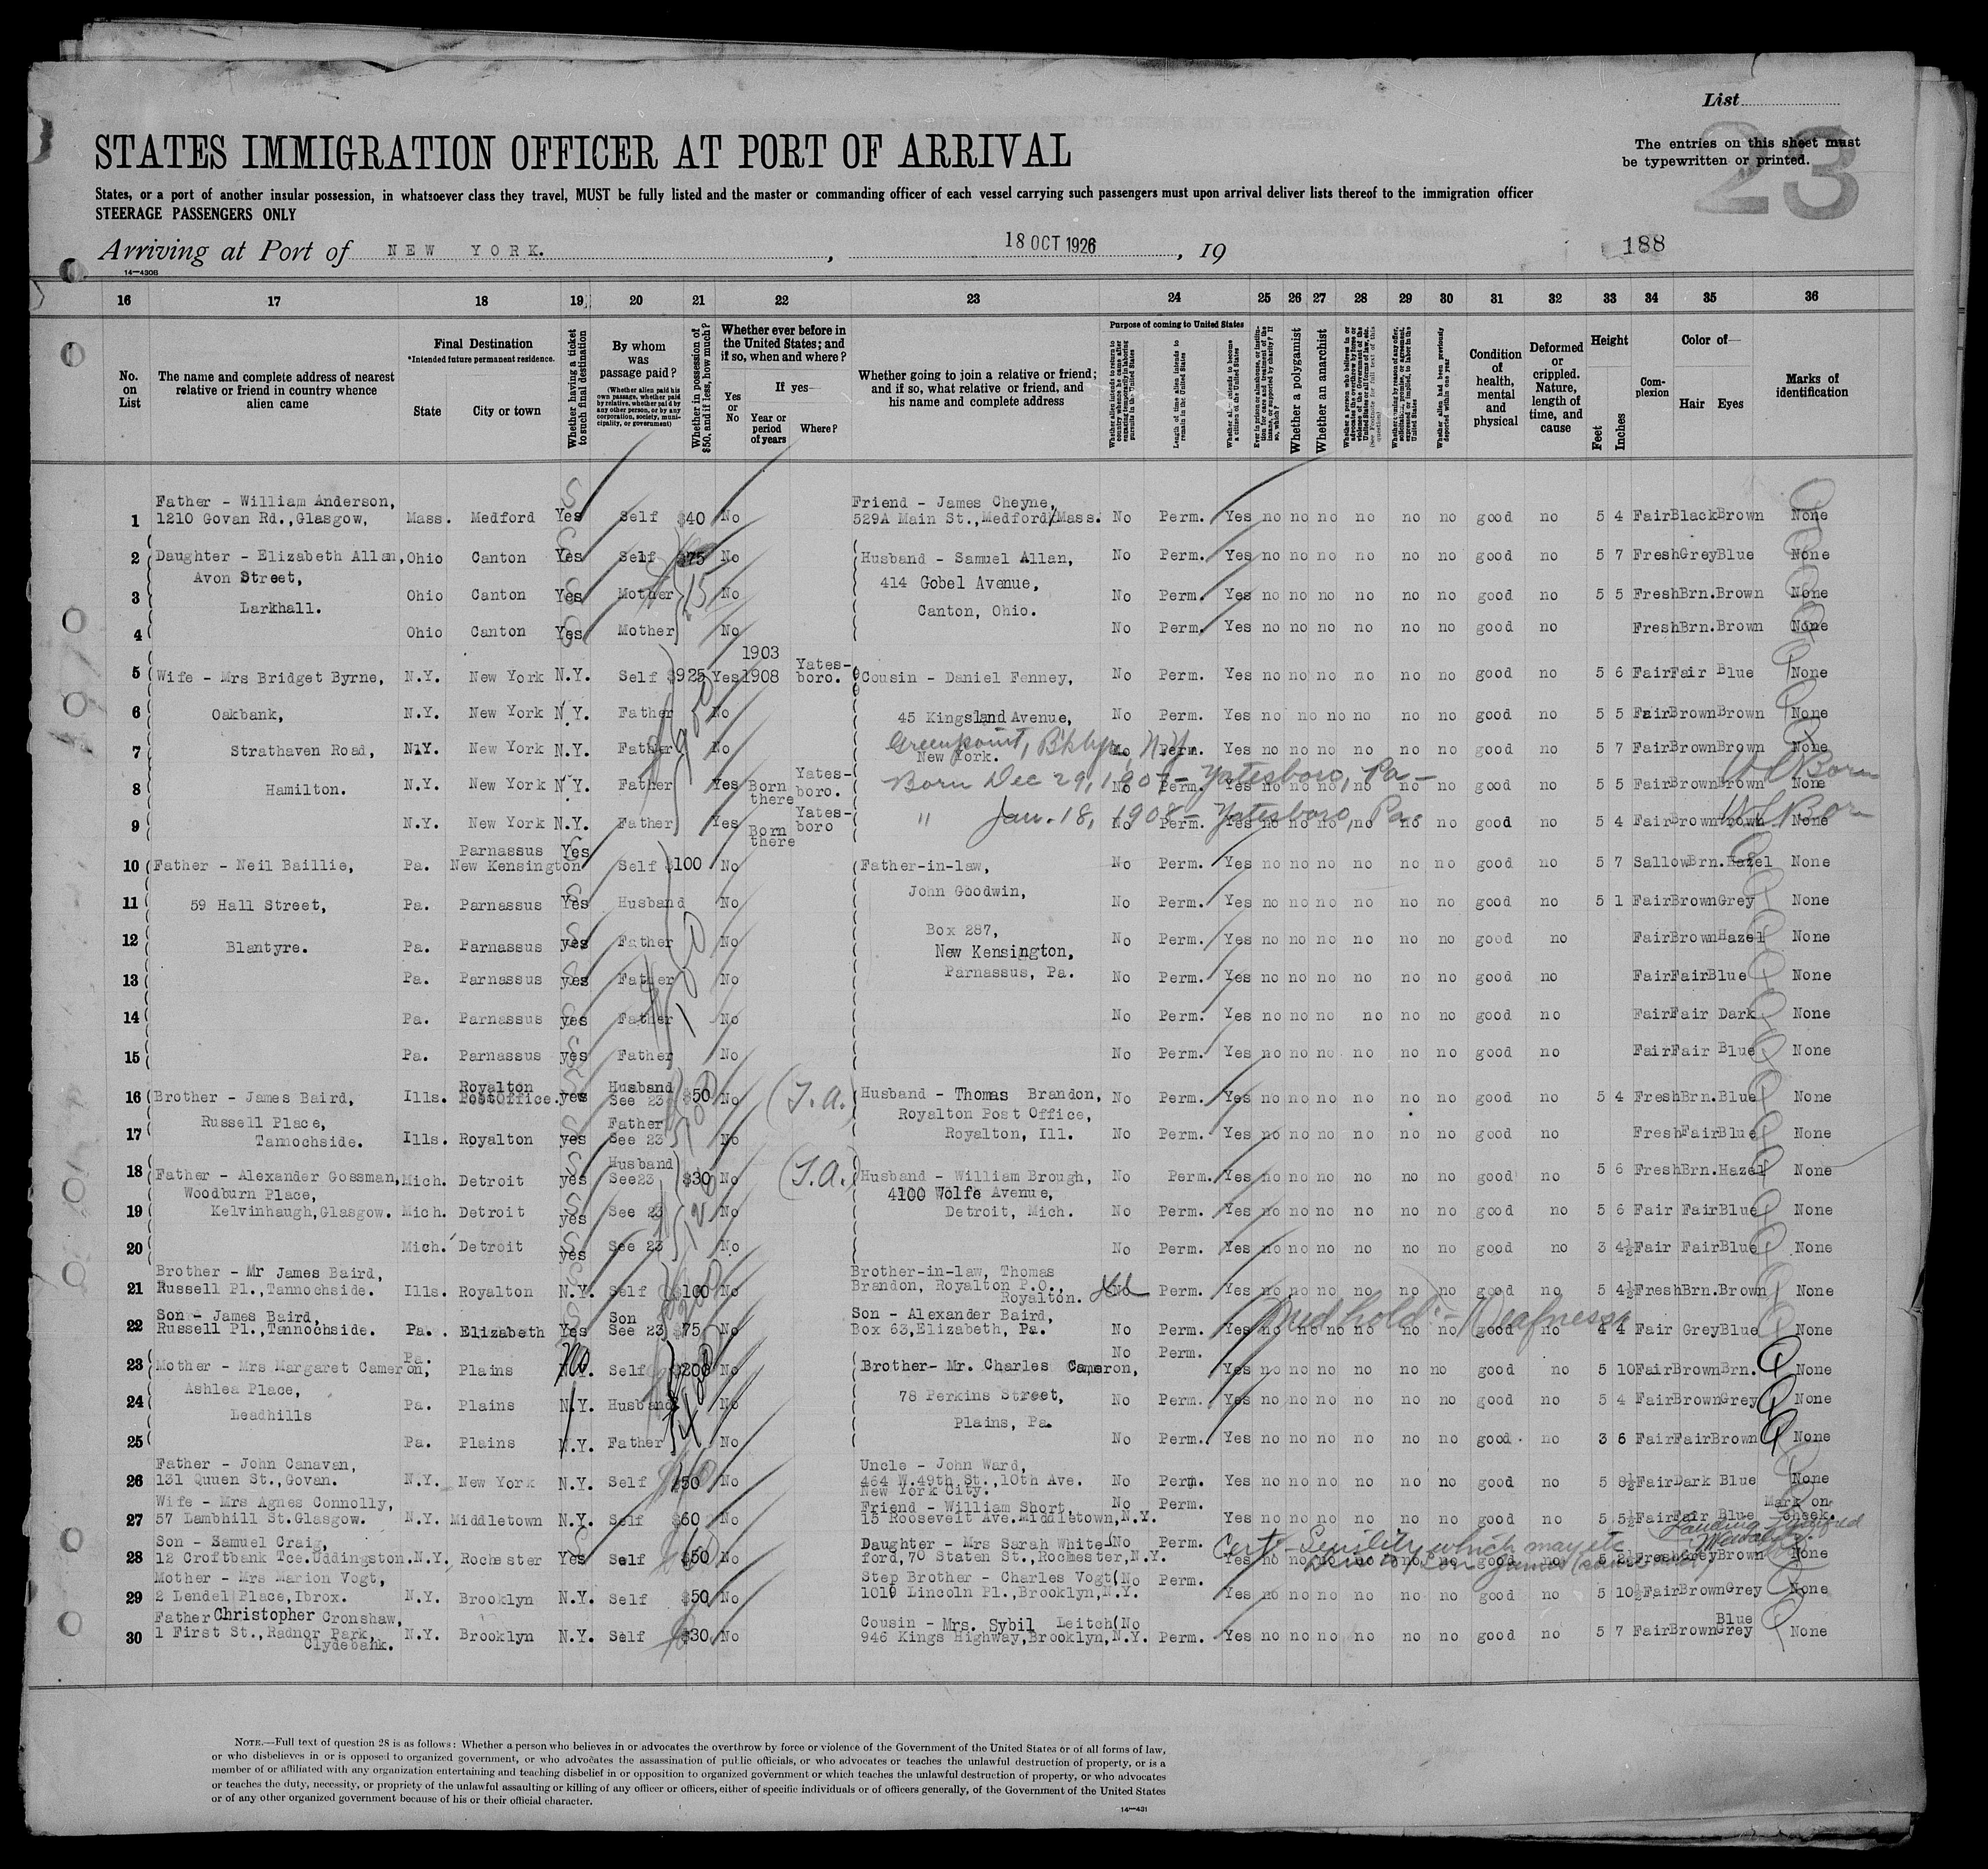 List
STATES IMMIGRATION OFFICER AT PORT OF ARRIVAL
The entries on this sheet must
be typewritten or printed.
23
States, or a port of another insular possession, in whatsoever class they travel, MUST be fully listed and the master or commanding officer of each vessel carrying such passengers must upon arrival deliver lists thereof to the immigration officer
STEERAGE PASSENGERS ONLY
Arriving at Port of NEW YORK. , 18 OCT 1926 , 19
188
14—430B
16 17 18 19 20 21 22 23 24 25 26 27 28 29 30 31 32 33 34 35 36
No. on List
The name and complete address of nearest relative or friend in country whence alien came
Final Destination
*Intended future permanent residence.
State City or town
Whether having a ticket to such final destination
By whom was passage paid?
(Whether alien paid his own passage, whether paid by relative, whether paid by any other person, or by any corporation, society, municipality, or government)
Whether in possession of $50, and if less, how much?
Whether ever before in the United States; and if so, when and where?
Yes or No
If yes—
Year or period of years
Where?
Whether going to join a relative or friend; and if so, what relative or friend, and his name and complete address
Purpose of coming to United States
Length of time alien intends to remain in the United States
Whether a polygamist
Whether an anarchist
Whether alien had been previously deported within one year
Condition of health, mental and physical
Deformed or crippled. Nature, length of time, and cause
Height
Feet Inches
Complexion
Color of—
Hair Eyes
Marks of identification
Father - William Anderson, Friend - James Cheyne,
1 1210 Govan Rd.,Glasgow, Mass. Medford Yes Self $40 No 529A Main St.,Medford,Mass. No Perm. Yes no no no no no no good no 5 4 Fair Black Brown None
2 Daughter - Elizabeth Allan, Ohio Canton Yes Self $75 No Husband - Samuel Allan, No Perm. Yes no no no no no no good no 5 7 Fresh Grey Blue None
Avon Street, 414 Gobel Avenue,
3 Ohio Canton Yes Mother No No Perm. Yes no no no no no no good no 5 5 Fresh Brn. Brown None
Larkhall. Canton, Ohio.
4 Ohio Canton Yes Mother No No Perm. Yes no no no no no no good no Fresh Brn. Brown None
1903 Yates-
5 Wife - Mrs Bridget Byrne, N.Y. New York N.Y. Self $925 Yes 1908 boro. Cousin - Daniel Fenney, No Perm. Yes no no no no no no good no 5 6 Fair Fair Blue None
6 Oakbank, N.Y. New York N.Y. Father No 45 Kingsland Avenue, No Perm. Yes no no no no no no good no 5 5 Fair Brown Brown None
Greenpoint, Bklyn, N.Y.
7 Strathaven Road, N.Y. New York N.Y. Father No New York. No Perm. Yes no no no no no no good no 5 7 Fair Brown Brown None
Born Dec 29, 1907 - Yatesboro, Pa - US Born
8 Hamilton. N.Y. New York N.Y. Father Yes Born there Yates-boro. No Perm. Yes no no no no no no good no 5 5 Fair Brown Brown None
" Jan. 18, 1908 - Yatesboro, Pa. US Born
9 N.Y. New York N.Y. Father Yes Born there Yates-boro No Perm. Yes no no no no no no good no 5 4 Fair Brown Brown None
Parnassus Yes
10 Father - Neil Baillie, Pa. New Kensington Self $100 No Father-in-law, No Perm. Yes no no no no no no good no 5 7 Sallow Brn. Hazel None
John Goodwin,
11 59 Hall Street, Pa. Parnassus Yes Husband No No Perm. Yes no no no no no no good no 5 1 Fair Brown Grey None
Box 287,
12 Blantyre. Pa. Parnassus yes Father No New Kensington, No Perm. Yes no no no no no no good no Fair Brown Hazel None
13 Pa. Parnassus yes Father No Parnassus, Pa. No Perm. Yes no no no no no no good no Fair Fair Blue None
14 Pa. Parnassus yes Father No No Perm. Yes no no no no no no good no Fair Fair Dark None
15 Pa. Parnassus yes Father No No Perm. Yes no no no no no no good no Fair Fair Blue None
Royalton Husband
16 Brother - James Baird, Ills. Post Office. yes See 23 $50 No (T.A.) Husband - Thomas Brandon, No Perm. Yes no no no no no no good no 5 4 Fresh Brn. Blue None
Russell Place, Father Royalton Post Office,
17 Tannochside. Ills. Royalton yes See 23 No Royalton, Ill. No Perm. Yes no no no no no no good no Fresh Fair Blue None
Husband
18 Father - Alexander Gossman, Mich. Detroit yes See 23 $30 No (T.A.) Husband - William Brough, No Perm. Yes no no no no no no good no 5 6 Fresh Brn. Hazel None
Woodburn Place, 4100 Wolfe Avenue,
19 Kelvinhaugh,Glasgow. Mich. Detroit yes See 23 No Detroit, Mich. No Perm. Yes no no no no no no good no 5 6 Fair Fair Blue None
20 Mich. Detroit yes See 23 No No Perm. Yes no no no no no no good no 3 4½ Fair Fair Blue None
Brother - Mr James Baird, Brother-in-law, Thomas
21 Russell Pl.,Tannochside. Ills. Royalton N.Y. Self $100 No Brandon, Royalton P.O., Perm. Yes no no no no no no good no 5 4½ Fresh Brn. Brown None
Royalton.
Son - James Baird, Son Son - Alexander Baird, Med hold:- Deafness
22 Russell Pl.,Tannochside. Pa. Elizabeth Yes See 23 $75 No Box 63,Elizabeth, Pa. No Perm. Yes no no no no no no good no 4 4 Fair Grey Blue None
Pa. No Perm.
23 Mother - Mrs Margaret Cameron, Plains N.Y. Self $200 No Brother- Mr. Charles Cameron, Yes no no no no no no good no 5 10 Fair Brown Brn. None
Ashlea Place, 78 Perkins Street,
24 Leadhills Pa. Plains N.Y. Husband No No Perm. Yes no no no no no no good no 5 4 Fair Brown Grey None
Plains, Pa.
25 Pa. Plains N.Y. Father No No Perm. Yes no no no no no no good no 3 6 Fair Fair Brown None
Father - John Canavan, Uncle - John Ward,
26 131 Quuen St.,Govan. N.Y. New York N.Y. Self $50 No 464 W.49th St.,10th Ave. No Perm. Yes no no no no no no good no 5 8½ Fair Dark Blue None
New York City.
Wife - Mrs Agnes Connolly, Friend - William Short, No Perm. Mark on
27 57 Lambhill St.Glasgow. N.Y. Middletown N.Y. Self $60 No 15 Roosevelt Ave.Middletown,N.Y. Yes no no no no no no good no 5 5½ Fair Fair Blue cheek.
Son - Samuel Craig, Daughter - Mrs Sarah White- (No Perm. Cert - Senility which may etc
28 12 Croftbank Tce.Uddingston. N.Y. Rochester Yes Self $50 No ford,70 Staten St.,Rochester,N.Y. Yes no no no no no no good no 5 2½ Fresh Grey Brown None
Mother - Mrs Marion Vogt, Step Brother - Charles Vogt (No Perm.
29 2 Lendel Place,Ibrox. N.Y. Brooklyn N.Y. Self $50 No 1019 Lincoln Pl.,Brooklyn,N.Y. Yes no no no no no no good no 5 10½ Fair Brown Grey None
Father Christopher Cronshaw, Cousin - Mrs. Sybil Leitch (No Blue
30 1 First St.,Radnor Park, N.Y. Brooklyn N.Y. Self $30 No 946 Kings Highway,Brooklyn,N.Y. Perm. Yes no no no no no no good no 5 7 Fair Brown Grey None
Clydebank.
NOTE.—Full text of question 28 is as follows: Whether a person who believes in or advocates the overthrow by force or violence of the Government of the United States or of all forms of law,
or who disbelieves in or is opposed to organized government, or who advocates the assassination of public officials, or who advocates or teaches the unlawful destruction of property, or is a
member of or affiliated with any organization entertaining and teaching disbelief in or opposition to organized government or which teaches the unlawful destruction of property, or who advocates
or teaches the duty, necessity, or propriety of the unlawful assaulting or killing of any officer or officers, either of specific individuals or of officers generally, of the Government of the United States
or of any other organized government because of his or their official character.
14—431